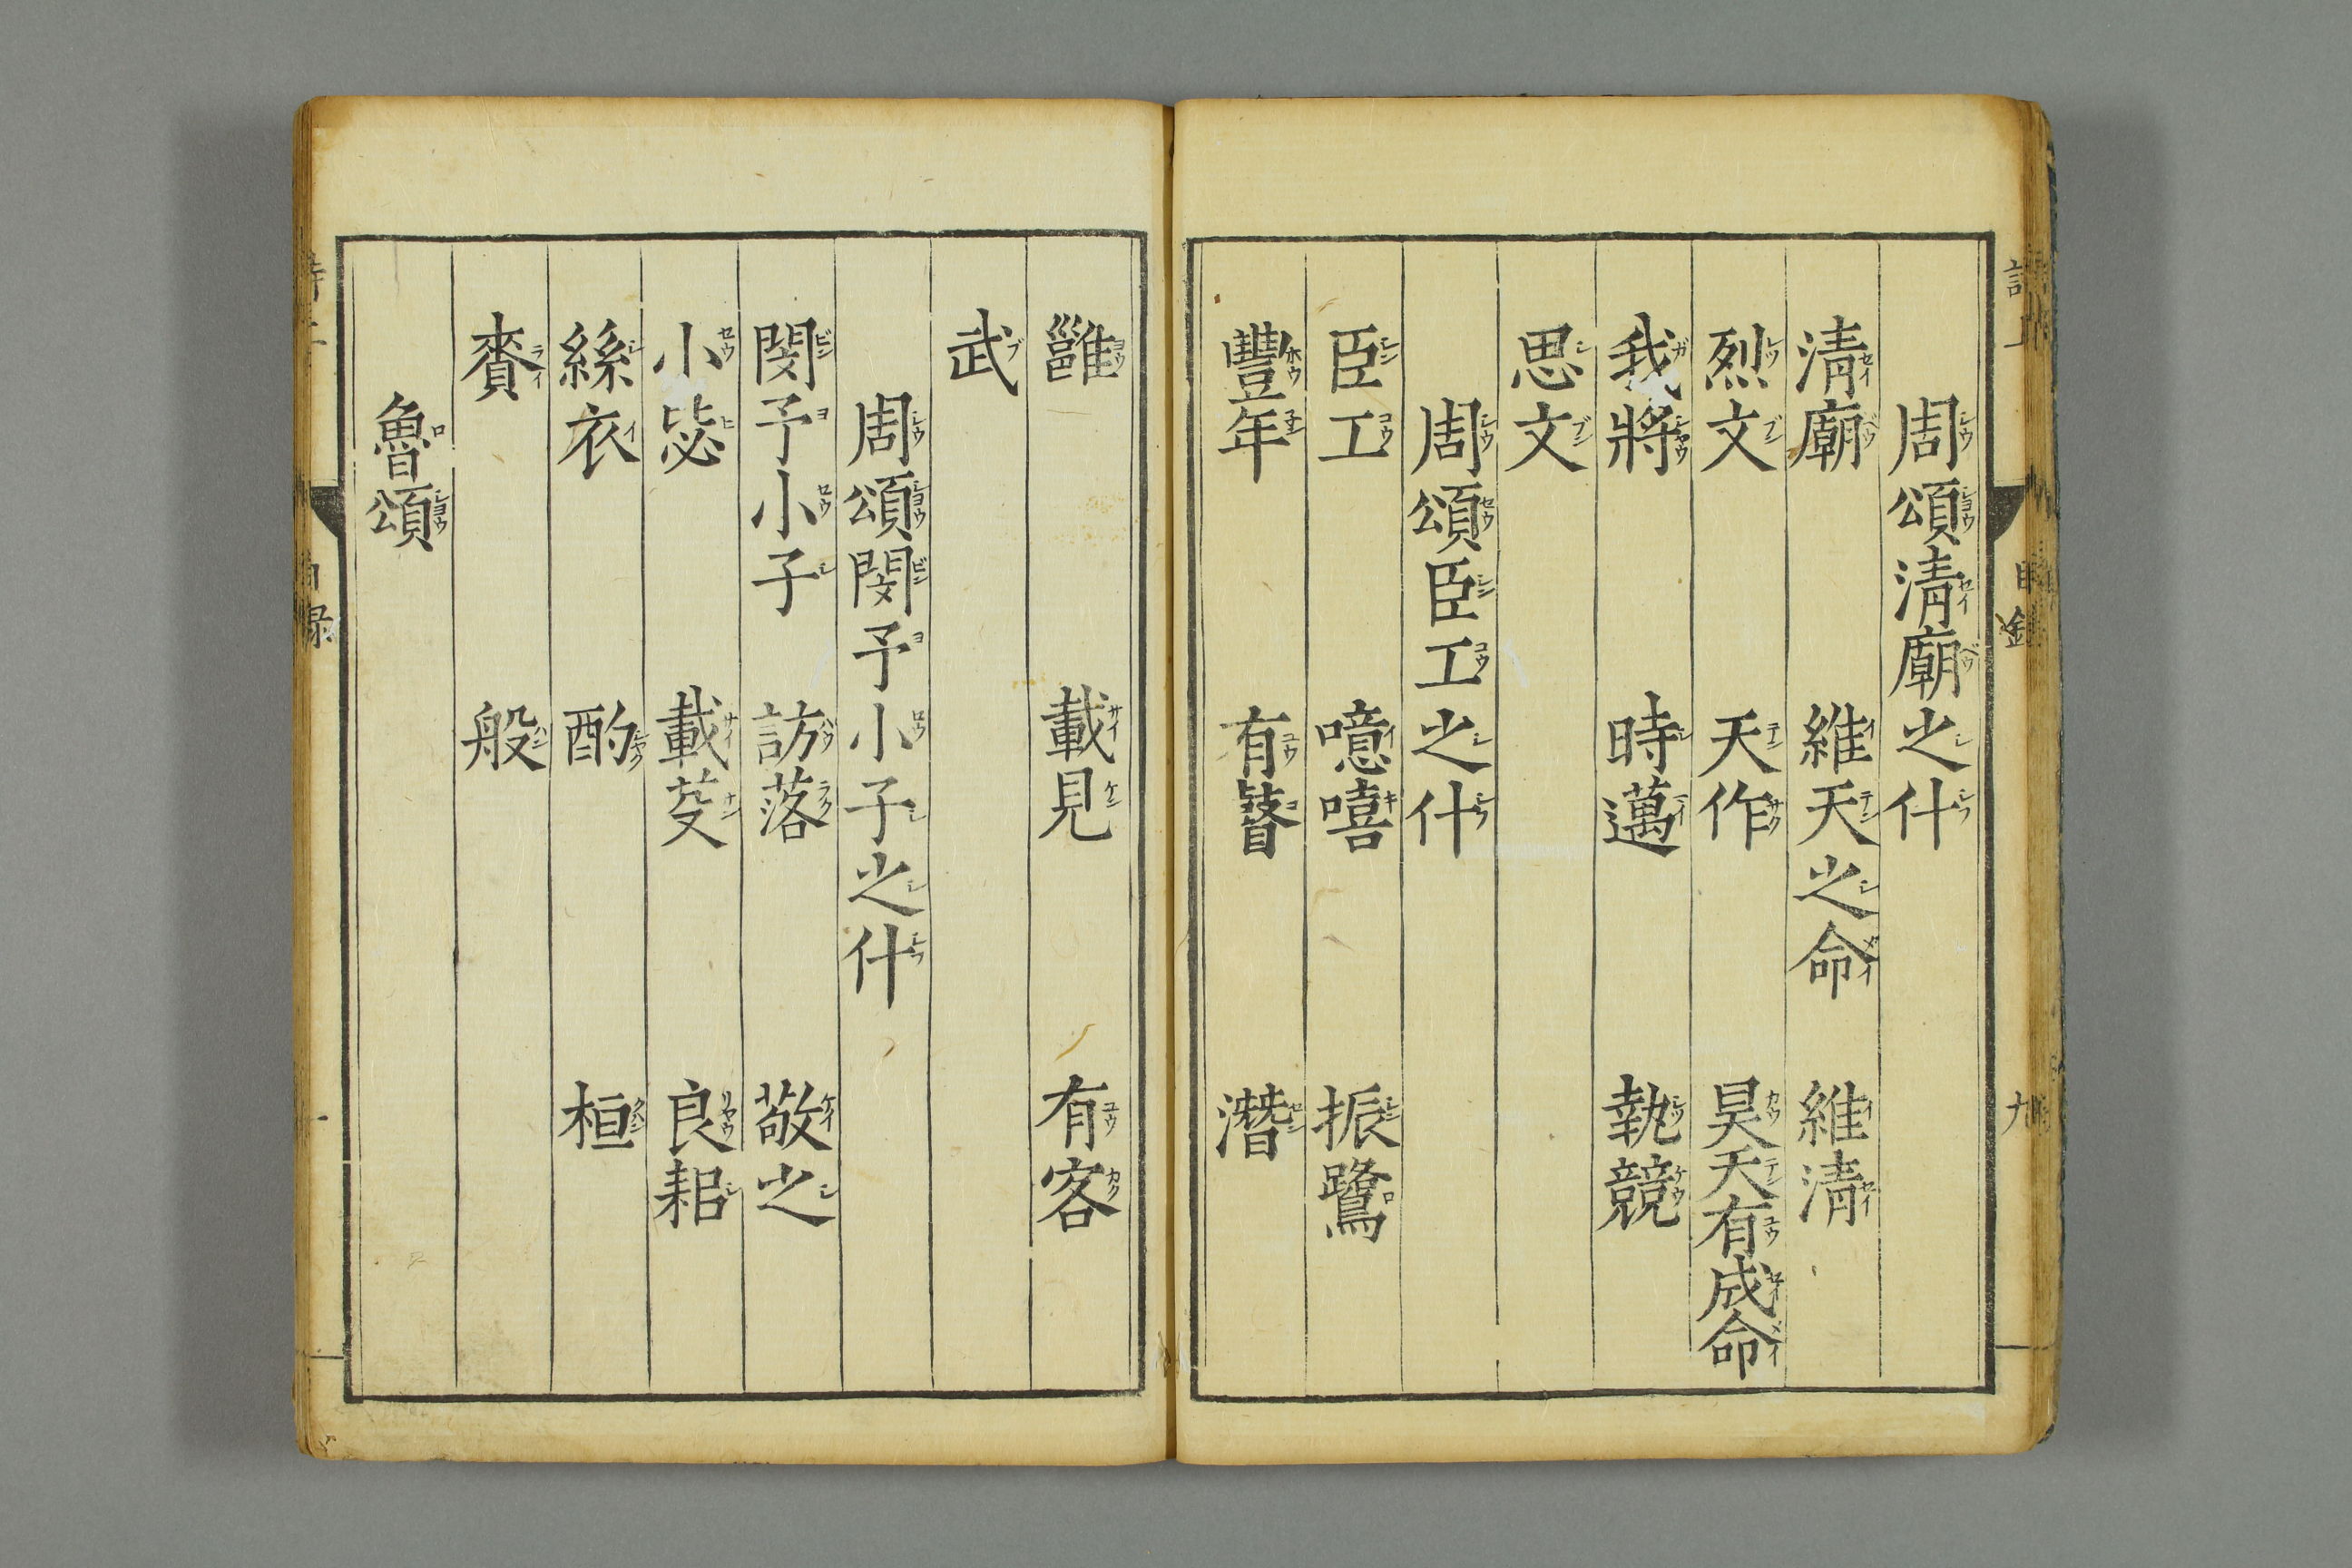 周頌清廟之什
清廟 維天之命 維清
烈文 天作 昊天有成命
我將 時邁 執競
思文
周頌臣工之什
臣工 噫嘻 振鷺
豐年 有瞽 潛
雝 載見 有客
武
周頌閔予小子之什
閔予小子 訪落 敬之
小毖 載芟 良耜
絲衣 酌 桓
賚 般
魯頌